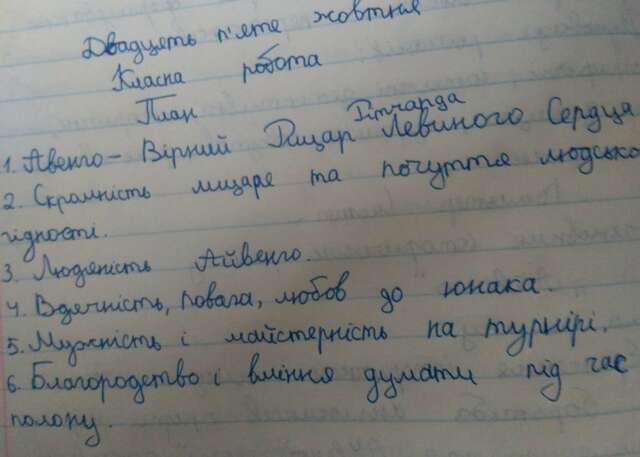 Двадцять п'яте жовтня
Класна робота
План
Річарда
1. Авенго - Вірний Лицар Левиного Серdця
2. Скромність лицаря та почуття людсько
гідності.
3. Людяність Айвенго.
4. Вдячність, повага, любов до юнака.
5. Мужність і майстерність на турнірі.
6. Благородство і вміння думати під час
полону.